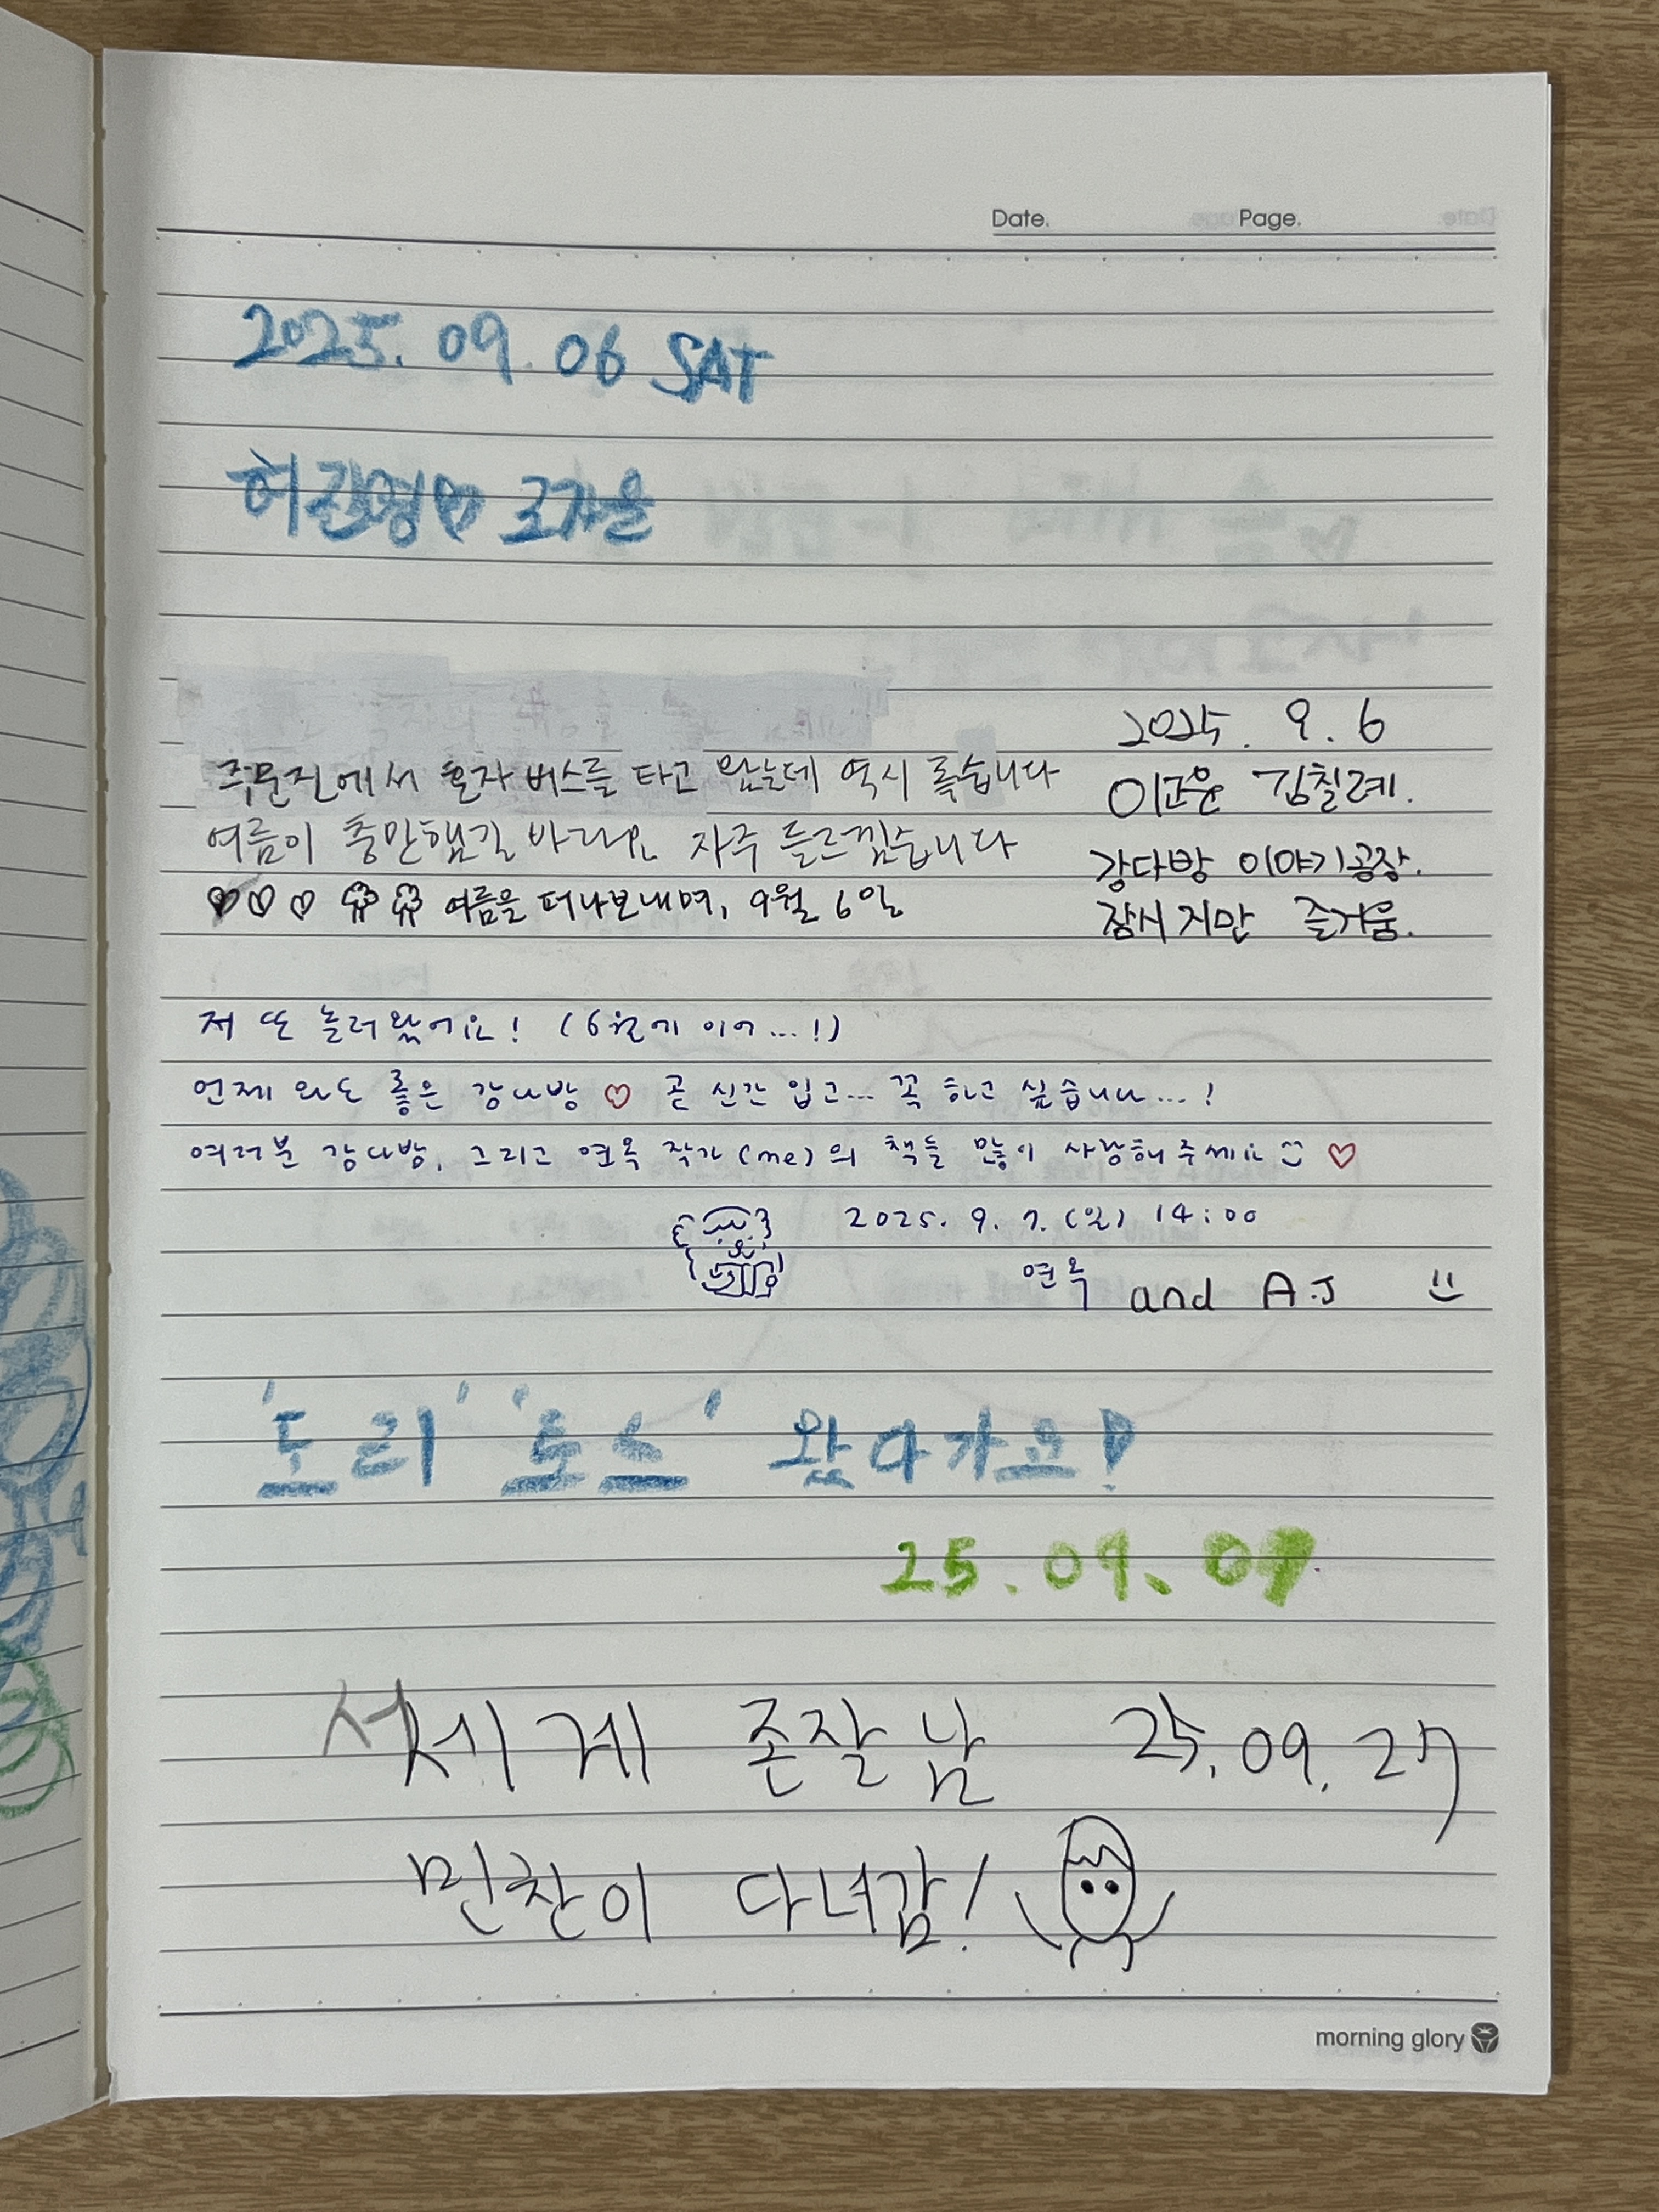 Date. Page.
2025. 09. 06 SAT
허길영♡ 고가을
2025. 9. 6
이고운 김칠례.
강다방 이야기공장.
잠시지만 즐거움.
주문진에서 혼자 버스를 타고 왔는데 역시 좋습니다
여름이 충만했길 바라요 자주 들르겠습니다
♡♡♡ 여름을 떠나보내며, 9월 6일
저 또 놀러왔어요! (6월에 이어...!)
언제 와도 좋은 강다방 ♡ 곧 신간 입고... 꼭 하고 싶습니다...!
여러분 강다방, 그리고 연옥 작가(me)의 책들 많이 사랑해주세요 ♡
2025. 9. 7. (일) 14:00
연옥 and A.J
'도리' '토스' 왔다가요!
25. 09. 07
세계 존잘남 25. 09. 27
민찬이 다녀감!
morning glory